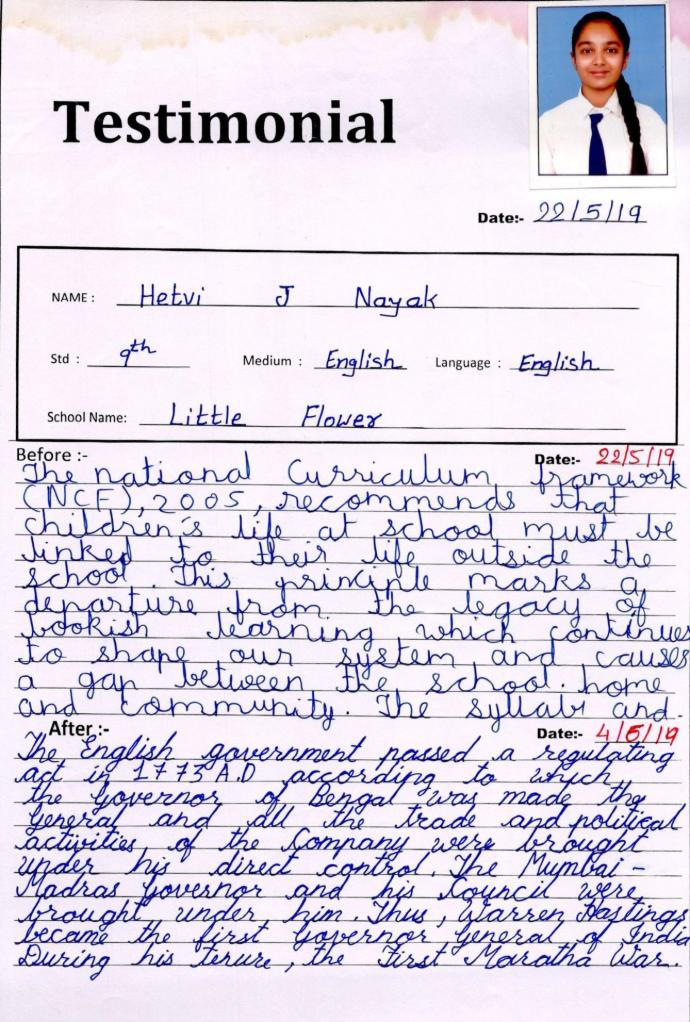 Testimonial
Date:- 22/5/19
NAME : Hetvi J Nayak
Std : 9th Medium : English Language : English
School Name: Little Flower
Before :- Date:- 22/5/19
The national Curriculum framework
(NCF), 2005, recommends that
children's life at school must be
linked to their life outside the
school. This principle marks a
departure from the legacy of
bookish learning which continues
to shape our system and causes
a gap between the school. home
and community. The syllabi and.
After :- Date:- 4/6/19
The English government passed a regulating
act in 1773 A.D according to which
the Governor of Bengal was made the
General and all the trade and political
activities, of the Company were brought
under his direct control. The Mumbai -
Madras Governor and his Council were
brought under him. Thus, Warren Hastings
became the first Governor General of India
During his terure, the First Maratha War.